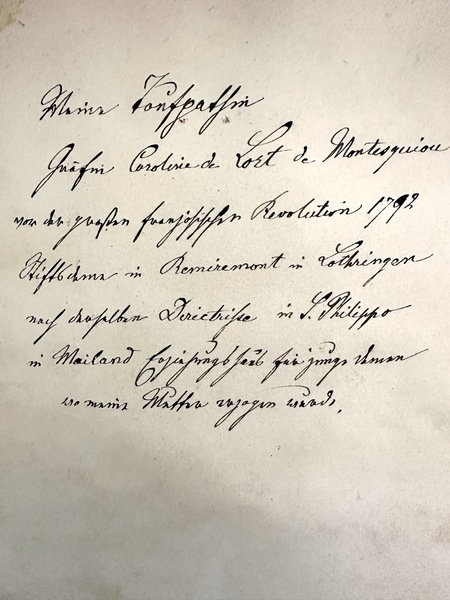 Meine Taufpathin
Gräfin Caroline de Lort de Montesquiou
vor der großen französischen Revolution 1792
Stiftsdame in Remiremont in Lothringen
nach derselben Directrisse in S. Philippo
in Mailand Erziehungshaus für junge Damen
wo meine Mutter erzogen wurde.